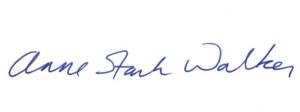 Anne Stark Walker